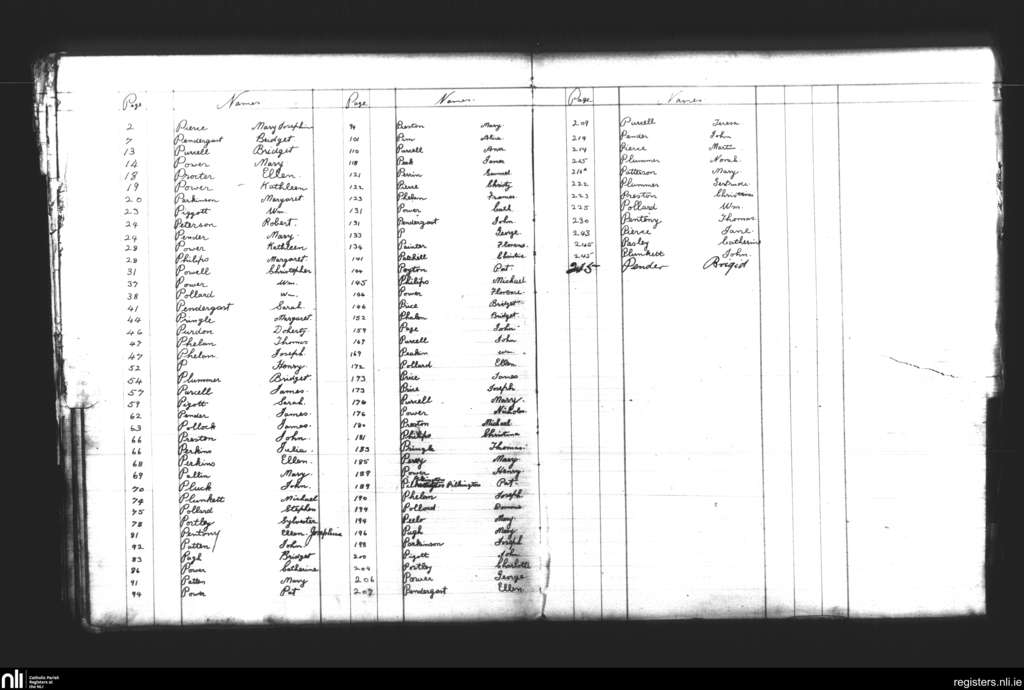 Page Names
2 Pierce Mary Joseph
7 Pendergast Bridget
13 Purcell Bridget
14 Power Mary
18 Procter Ellen.
19 Power Kathleen
20 Parkinson Margaret
23 Piggott Wm.
24 Peterson Robert.
24 Pender Mary.
28 Power Kathleen
28 Philips Margaret
31 Powell Christopher
37 Power Wm.
38 Pollard Wm.
41 Pendergast Sarah
44 Pringle Margaret.
46 Purdon Doherty
47 Phelan Thomas
47 Phelan Joseph.
52 P Henry
54 Plummer Bridget.
57 Purcell James.
59 Pigott Sarah.
62 Pender James.
63 Pollock James.
66 Preston John.
66 Perkins Julia.
68 Perkins Ellen.
69 Mary
70 Pluck John.
74 Plunkett Michael
75 Pollard Stephen
78 Portley Sylvester
81 Pentony Ellen Josephine
92 Patten John
83 Pugh Bridget
86 Power Catherine
91 Patten Mary
94 Power Pat
Page Names.
Preston Mary.
101
110 Purcell
118 James
121 Perrin Samuel
122 Pierce Christy
123 Phelan Frances
131 Power Cath.
131 Pendergast John.
133 P George.
134 Painter Florence.
141 Patchell Christie
144 Peyton Pat.
145 Philips Michael
146 Power Florence
146 Price Bridget
152 Phelan Bridget.
159 Page John
167 Purcell John
169 Peakin Wm
172 Pollard Ellen
173 Price James
173 Price Joseph
176 Purcell Mary.
176 Power Nicholas
180 Preston Michael
181 Philips Christina
183 Pringle Thomas.
185 Percy Mary.
189 Power Henry.
189 Pilkington Pat.
190 Phelan Joseph
194 Pollard Dennis
194 Peelo Mary.
196 Pugh Mary
198 Parkinson Joseph
200 Pigott John
204 Portley Charlotte
206 Power George
207 Pendergast Ellen
Page Names
209 Purcell Teresa
214 Pender John
214 Pierce
215 Plummer Norah.
Patterson Mary.
222 Plummer Gertrude
223 Preston Christina
225 Pollard Wm.
230 Pentony Thomas
243 Pierce Jane.
245 Pasley Catherine
245 Plunkett John.
245 Pender Brigid
nli Catholic Parish
Registers at
the NLI
registers.nli.ie